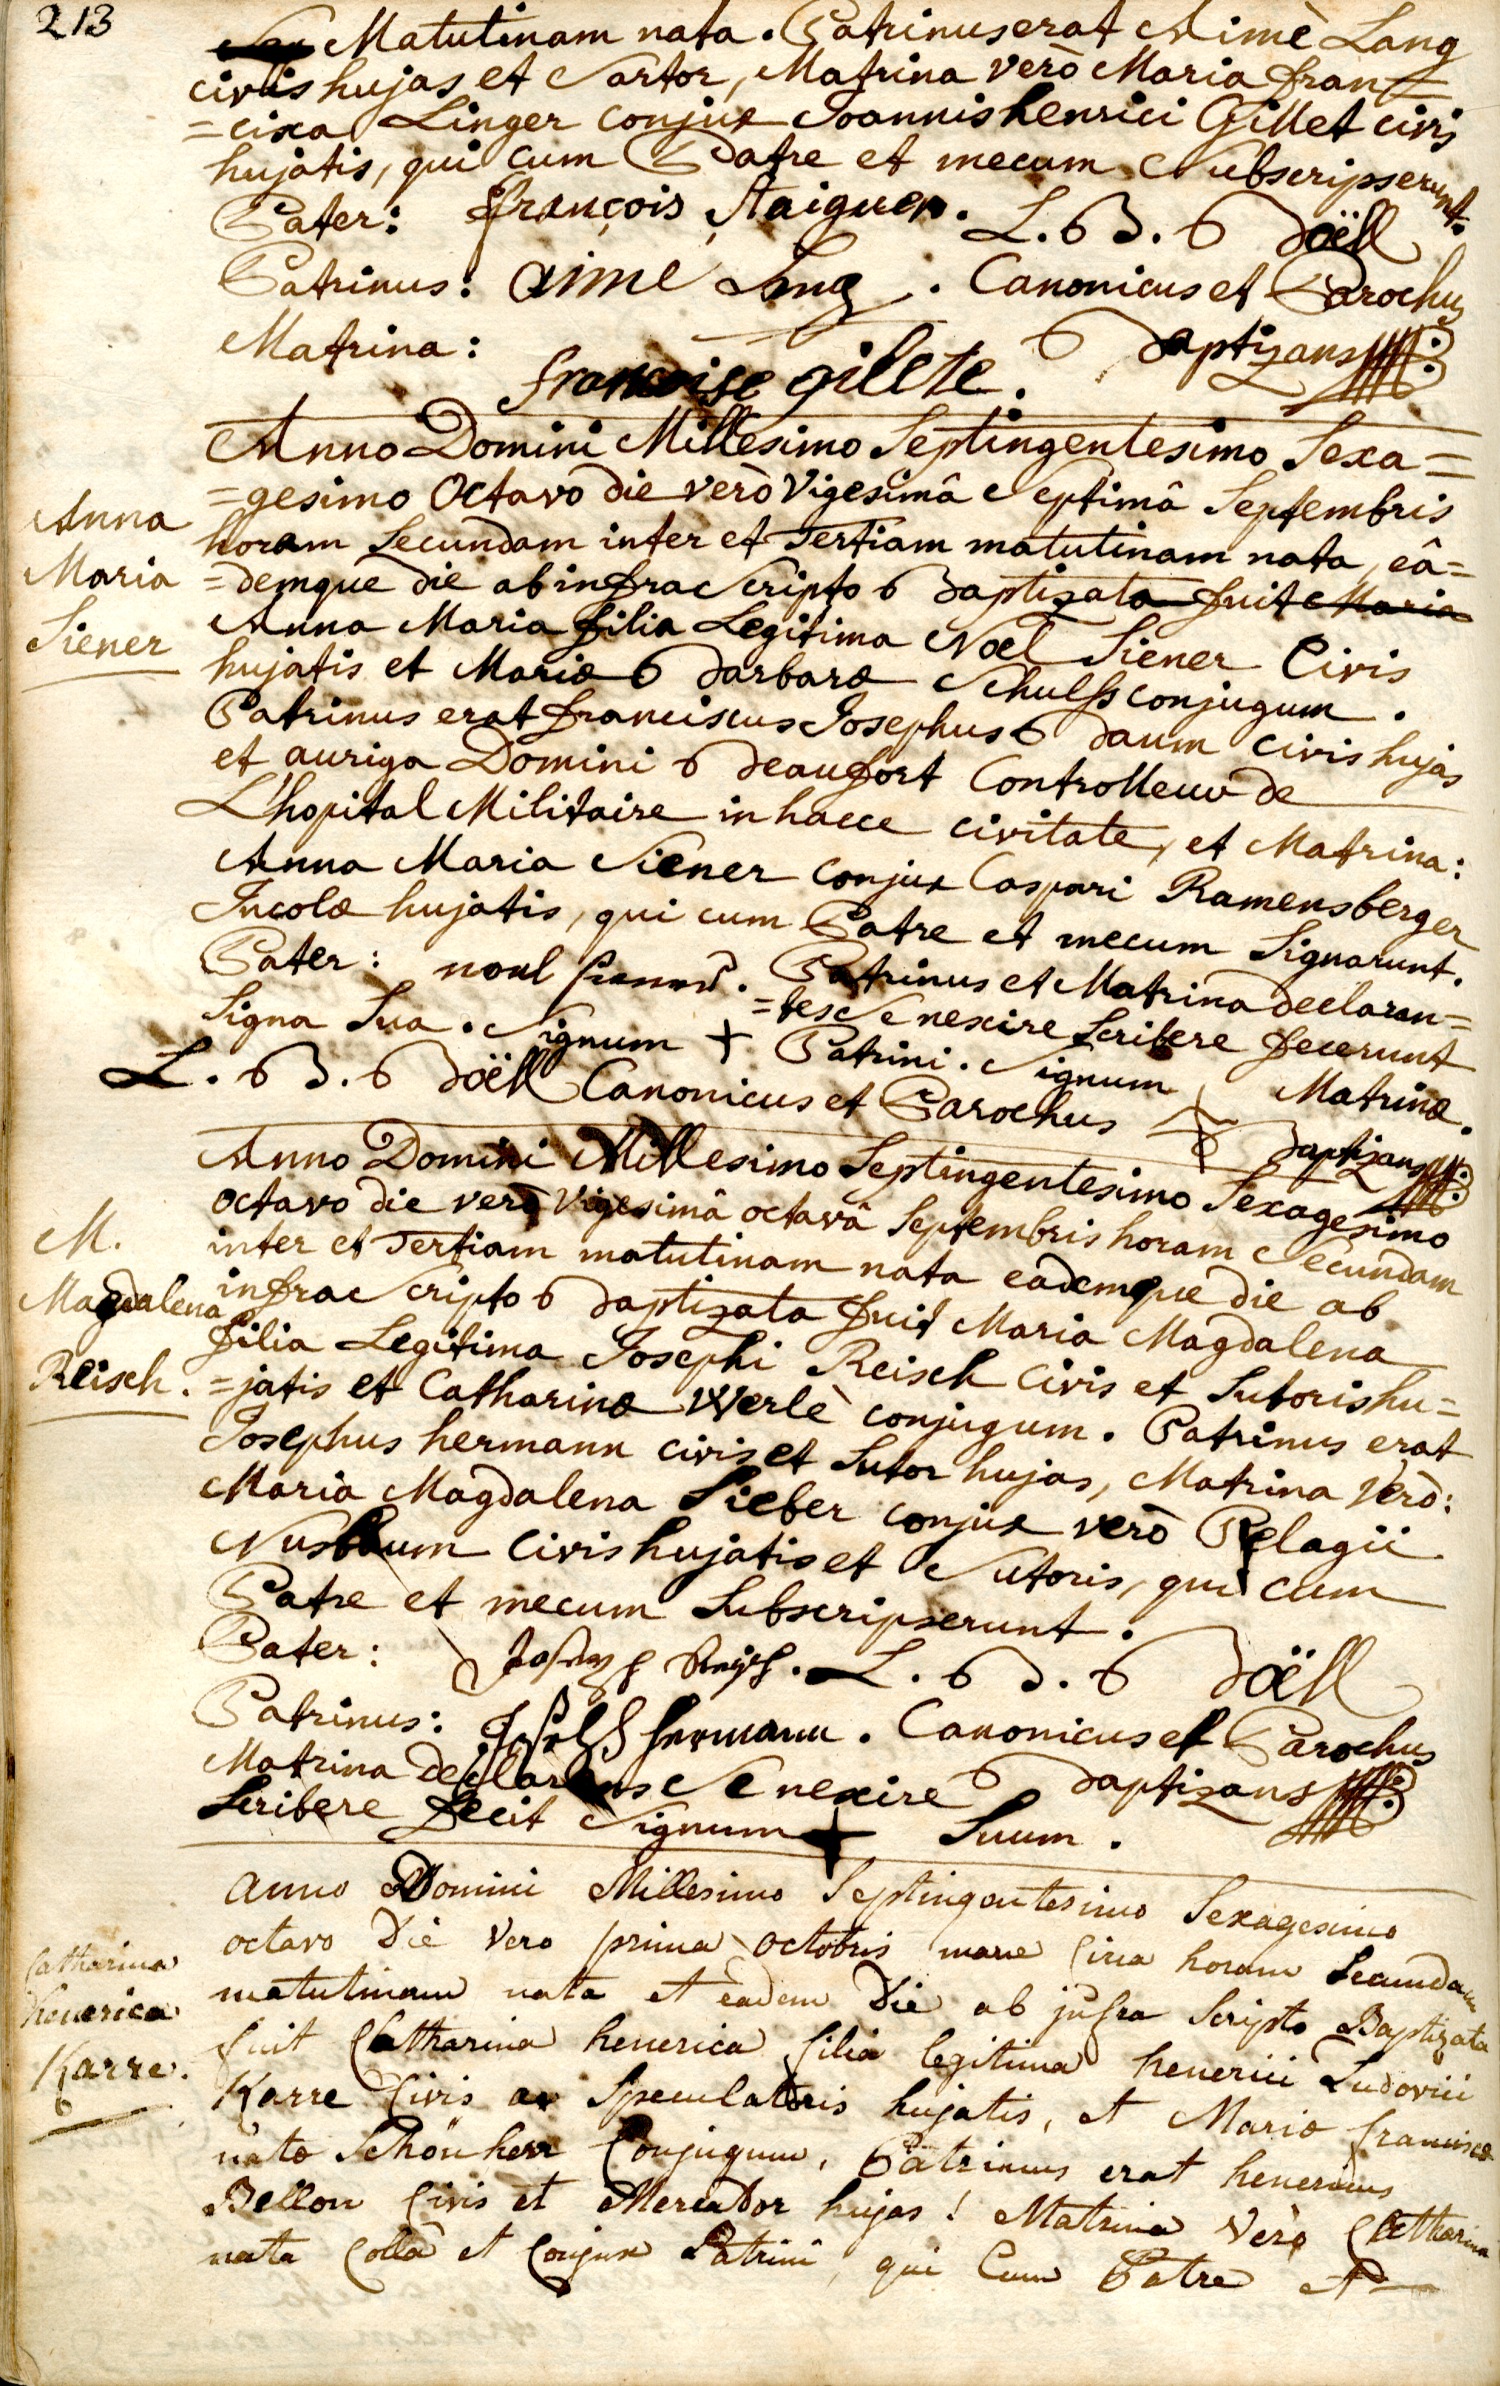 213
Matutinam nata. Patrinus erat Aimè Lang
civis hujas et Sartor, Matrina verò Maria fran=
=cisca Linger conjux Joannis henrici Gillet civis
hujatis, qui cum Patre et mecum Subscripserunt.
Pater: françois Staiguer. L. B. Böell
Patrinus: aime Lang. Canonicus et Parochus
Matrina: francoise gillete. Baptizans
Anno Domini Millesimo Septingentesimo Sexa=
=gesimo Octavo die verò Vigesimâ Septimâ Septembris
Anna
Maria
Siener
horam Secundam inter et Tertiam matutinam nata, eâ=
=demque die ab infra Scripto Baptizata fuit Maria
Anna Maria filia Legitima Noel Siener Civis
hujatis et Mariæ Barbaræ Schulss conjugum.
Patrinus erat franciscus Josephus Baum civis hujas
et auriga Domini Beaufort Controlleur de
L'hopital Militaire in hacce civitate, et Matrina:
Anna Maria Siener conjux Caspari Ramensberger
Incolæ hujatis, qui cum Patre et mecum Signarunt.
Pater: noul. Patrinus et Matrina declaran=
=tes Se nescire Scribere fecerunt
Signa Sua. Signum + Patrini. Signum Matrinæ.
L. B. Böell Canonicus et Parochus Baptizans
Anno Domini Millesimo Septingentesimo Sexagesimo
octavo die verò Vigesimâ octavâ Septembris horam Secundam
M.
Magdalena
Reisch.
inter et Tertiam matutinam nata eademque die ab
infra Scripto Baptizata fuit Maria Magdalena
filia Legitima Josephi Reisch Civis et Sutoris hu=
=jatis et Catharinæ Werlè conjugum. Patrinus erat
Josephus hermann civis et Sutor hujas, Matrina Verò:
Maria Magdalena Sieber conjux verò Pelagii
Nusbaum Civis hujatis et Sutoris, qui cum
Patre et mecum Subscripserunt.
Pater: Joseph Reisch. L. B. Böell
Patrinus: Joseph hermann. Canonicus et Parochus
Matrina declarans Se nescire Baptizans
Scribere fecit Signum + Suum.
Anno Domini Millesimo Septingentesimo Sexagesimo
octavo Die Vero prima octobris mane Circa horam Secundam
Catharina
henerica
Karre.
matutinam nata et eadem Die ab jnfra Scripto Baptizata
fuit Catharina henerica filia legitima henerici Ludovici
Karre Civis ac Speculatoris hujatis, et Mariæ franciscæ
natæ Schönherr Conjugum, Patrinus erat henericus
Bellon Civis et Mercator hujas! Matrina Verò Catharina
nata Colla et Conjux Patrini, qui Cum Patre et